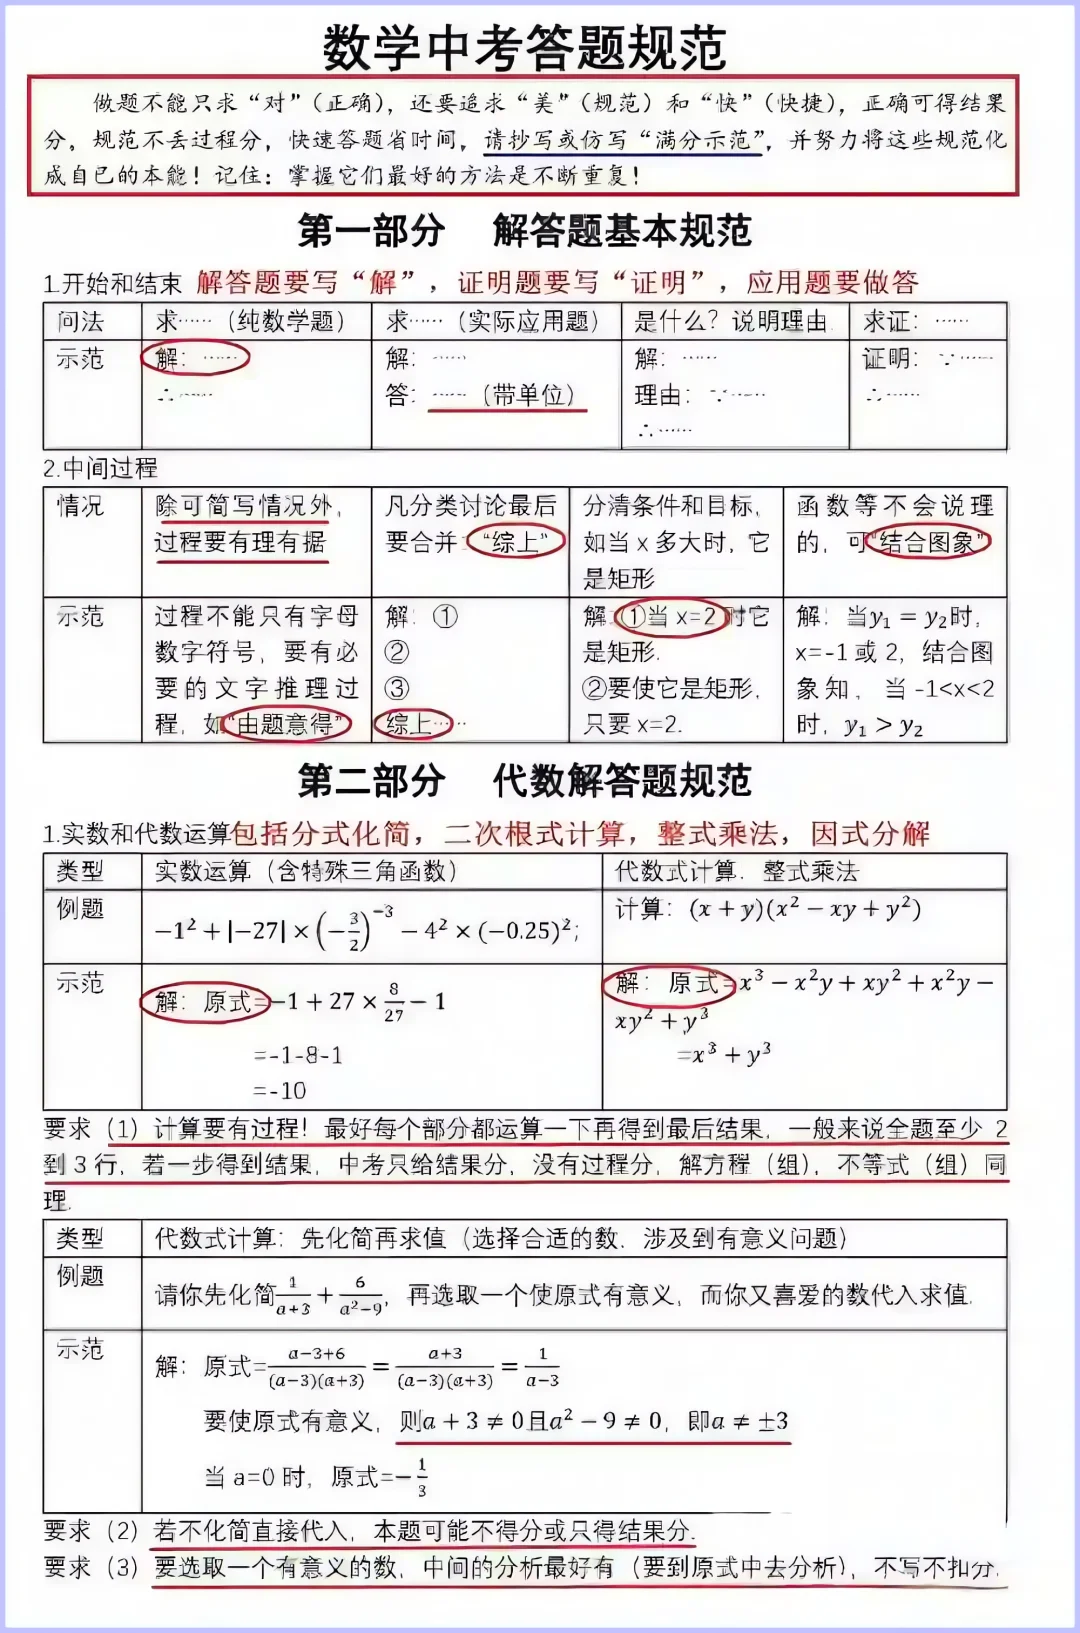 数学中考答题规范
做题不能只求“对”（正确），还要追求“美”（规范）和“快”（快捷），正确可得结果
分，规范不丢过程分，快速答题省时间，请抄写或仿写“满分示范”，并努力将这些规范化
成自己的本能！记住：掌握它们最好的方法是不断重复！
第一部分 解答题基本规范
1.开始和结束 解答题要写“解”，证明题要写“证明”，应用题要做答
问法 求……（纯数学题） 求……（实际应用题） 是什么？说明理由. 求证：……
示范 解：…… 解：…… 解：…… 证明：∵……
∴…… 答：……（带单位） 理由：∵…… ∴……
∴……
2.中间过程
情况 除可简写情况外， 凡分类讨论最后 分清条件和目标， 函数等不会说理
过程要有理有据 要合并：“综上” 如当x多大时，它 的，可“结合图象”
是矩形
示范 过程不能只有字母 解：① 解：①当x=2时它 解：当y₁ = y₂时，
数字符号，要有必 ② 是矩形. x=-1或2，结合图
要的文字推理过 ③ ②要使它是矩形， 象知，当-1<x<2
程，如“由题意得” 综上…… 只要x=2. 时，y₁ > y₂
第二部分 代数解答题规范
1.实数和代数运算包括分式化简，二次根式计算，整式乘法，因式分解
类型 实数运算（含特殊三角函数） 代数式计算．整式乘法
例题 −1² + |−27| × (−3/2)⁻³ − 4² × (−0.25)²; 计算：(x + y)(x² − xy + y²)
示范 解：原式=−1 + 27 × 8/27 − 1 解：原式=x³ − x²y + xy² + x²y −
xy² + y³
=-1-8-1 =x³ + y³
=-10
要求（1）计算要有过程！最好每个部分都运算一下再得到最后结果，一般来说全题至少 2
到 3 行，若一步得到结果，中考只给结果分，没有过程分，解方程（组），不等式（组）同
理.
类型 代数式计算：先化简再求值（选择合适的数．涉及到有意义问题）
例题 请你先化简1/(a+3) + 6/(a²−9)，再选取一个使原式有意义，而你又喜爱的数代入求值.
示范 解：原式=(a−3+6)/((a−3)(a+3)) = (a+3)/((a−3)(a+3)) = 1/(a−3)
要使原式有意义，则a + 3 ≠ 0且a² − 9 ≠ 0，即a ≠ ±3
当 a=0 时，原式=−1/3
要求（2）若不化简直接代入，本题可能不得分或只得结果分.
要求（3）要选取一个有意义的数，中间的分析最好有（要到原式中去分析），不写不扣分.